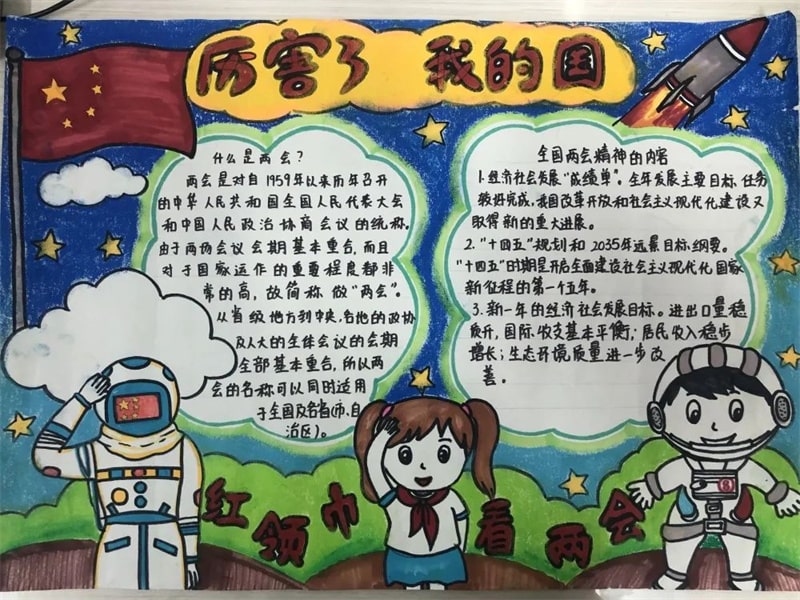 厉害了 我的国
什么是两会?
两会是对自1959年以来历年召开
的中华人民共和国全国人民代表大会
和中国人民政治协商会议的统称。
由于两场会议会期基本重合,而且
对于国家运作的重要程度都非
常的高,故简称做“两会”。
从省级地方到中央,各地的政协
及人大的全体会议的会期
全部基本重合,所以两
会的名称可以同时适用
于全国及各省(市、自
治区)。
全国两会精神的内容
1.经济社会发展“成绩单”。全年发展主要目标任务
较好完成,我国改革开放和社会主义现代化建设又
取得新的重大进展。
2.“十四五”规划和2035年远景目标纲要。
“十四五”时期是开启全面建设社会主义现代化国家
新征程的第一个五年。
3.新一年的经济社会发展目标。进出口量稳
质升,国际收支基本平衡;居民收入稳步
增长;生态环境质量进一步改
善。
红领巾看两会